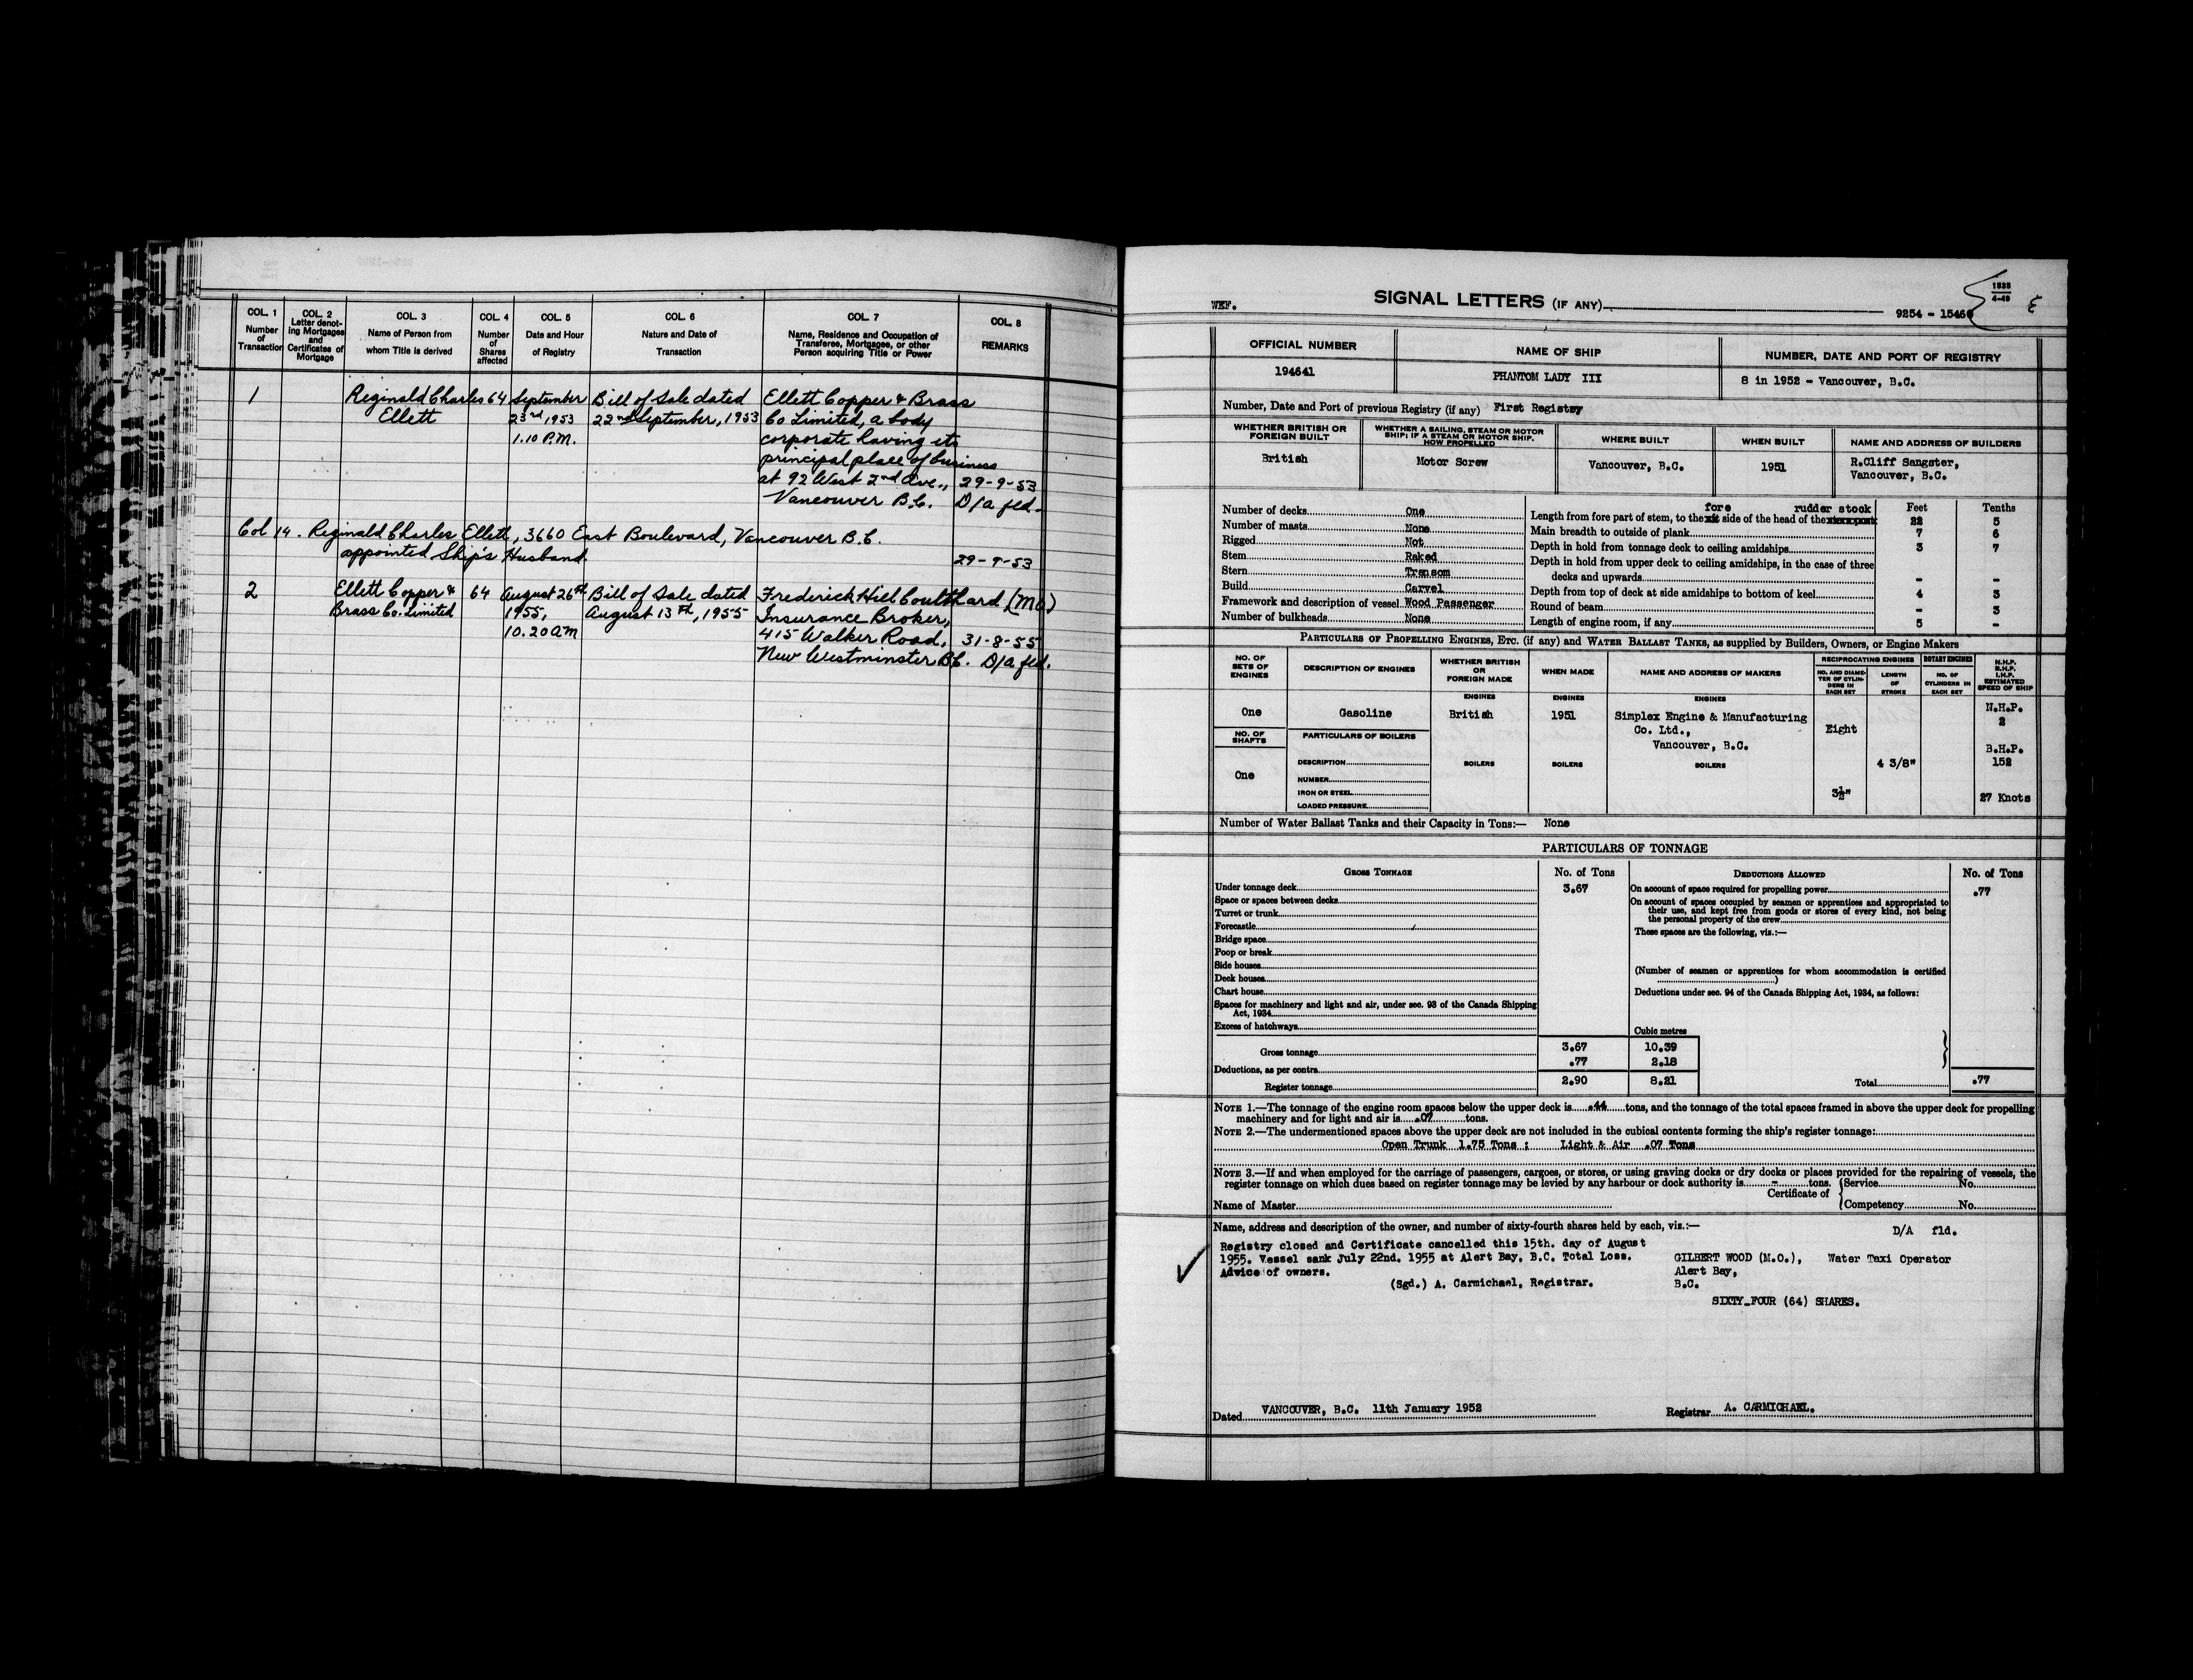 COL. 1
Number
of
Transaction
COL. 2
Letter denot-
ing Mortgages
and
Certificates of
Mortgage
COL. 3
Name of Person from
whom Title is derived
COL. 4
Number
of
Shares
affected
COL. 5
Date and Hour
of Registry
COL. 6
Nature and Date of
Transaction
COL. 7
Name, Residence and Occupation of
Transferee, Mortgagee, or other
Person acquiring Title or Power
COL. 8
REMARKS
1 Reginald Charles 64 September Bill of Sale dated Ellett Copper & Brass
Ellett 23rd 1953 22nd September, 1953 Co Limited, a body
1.10 P.M. corporate having its
principal place of business
at 92 West 2nd Ave., 29-9-53
Vancouver B.C. D/a fld.
Col 14. Reginald Charles Ellett, 3660 East Boulevard, Vancouver B.C.
appointed Ship's Husband.
29-9-53
2 Ellett Copper & 64 August 26th Bill of Sale dated Frederick Hill Coulthard (MO)
Brass Co. Limited 1955, August 13th, 1955 Insurance Broker,
10.20 am 415 Walker Road, 31-8-55
New Westminster BC. D/a fld.
WEF.
SIGNAL LETTERS (IF ANY)
1535
4-49
9254 - 15460
OFFICIAL NUMBER
194641
NAME OF SHIP
PHANTOM LADY III
NUMBER, DATE AND PORT OF REGISTRY
8 in 1952 - Vancouver, B.C.
Number, Date and Port of previous Registry (if any) First Registry
WHETHER BRITISH OR
FOREIGN BUILT
British
WHETHER A SAILING, STEAM OR MOTOR
SHIP; IF A STEAM OR MOTOR SHIP,
HOW PROPELLED
Motor Screw
WHERE BUILT
Vancouver, B.C.
WHEN BUILT
1951
NAME AND ADDRESS OF BUILDERS
R.Cliff Sangster,
Vancouver, B.C.
Number of decks One
Number of masts None
Rigged Not
Stem Raked
Stern Transom
Build Carvel
Framework and description of vessel Wood Passenger
Number of bulkheads None
fore rudder stock Feet Tenths
Length from fore part of stem, to the side of the head of the 22 5
Main breadth to outside of plank 7 6
Depth in hold from tonnage deck to ceiling amidships 3 7
Depth in hold from upper deck to ceiling amidships, in the case of three
decks and upwards - -
Depth from top of deck at side amidships to bottom of keel 4 3
Round of beam - 3
Length of engine room, if any 5 -
PARTICULARS OF PROPELLING ENGINES, ETC. (if any) and WATER BALLAST TANKS, as supplied by Builders, Owners, or Engine Makers
NO. OF
SETS OF
ENGINES
DESCRIPTION OF ENGINES
WHETHER BRITISH
OR
FOREIGN MADE
WHEN MADE
NAME AND ADDRESS OF MAKERS
RECIPROCATING ENGINES
NO. AND DIAME-
TER OF CYLIN-
DERS IN
EACH SET
LENGTH
OF
STROKE
ROTARY ENGINES
NO. OF
CYLINDERS IN
EACH SET
N.H.P.
B.H.P.
I.H.P.
ESTIMATED
SPEED OF SHIP
ENGINES ENGINES ENGINES
One Gasoline British 1951 Simplex Engine & Manufacturing
Co. Ltd.,
Vancouver, B.C.
Eight
N.H.P.
2
NO. OF
SHAFTS
PARTICULARS OF BOILERS
B.H.P.
One
DESCRIPTION BOILERS BOILERS BOILERS 4 3/8" 152
NUMBER
IRON OR STEEL 3½" 27 Knots
LOADED PRESSURE
Number of Water Ballast Tanks and their Capacity in Tons:— None
PARTICULARS OF TONNAGE
GROSS TONNAGE No. of Tons
Under tonnage deck 3.67
Space or spaces between decks
Turret or trunk
Forecastle
Bridge space
Poop or break
Side houses
Deck houses
Chart house
Spaces for machinery and light and air, under sec. 93 of the Canada Shipping
Act, 1934
Excess of hatchways
Cubic metres
Gross tonnage 3.67 10.39
Deductions, as per contra .77 2.18
Register tonnage 2.90 8.21
DEDUCTIONS ALLOWED No. of Tons
On account of space required for propelling power .77
On account of spaces occupied by seamen or apprentices and appropriated to
their use, and kept free from goods or stores of every kind, not being
the personal property of the crew
These spaces are the following, viz.:—
(Number of seamen or apprentices for whom accommodation is certified
)
Deductions under sec. 94 of the Canada Shipping Act, 1934, as follows:
Total .77
NOTE 1.—The tonnage of the engine room spaces below the upper deck is .44 tons, and the tonnage of the total spaces framed in above the upper deck for propelling
machinery and for light and air is .07 tons.
NOTE 2.—The undermentioned spaces above the upper deck are not included in the cubical contents forming the ship's register tonnage:
Open Trunk 1.75 Tons ; Light & Air .07 Tons
NOTE 3.—If and when employed for the carriage of passengers, cargoes, or stores, or using graving docks or dry docks or places provided for the repairing of vessels, the
register tonnage on which dues based on register tonnage may be levied by any harbour or dock authority is - tons.
Certificate of
Service No.
Competency No.
Name of Master
Name, address and description of the owner, and number of sixty-fourth shares held by each, viz.:—
D/A fld.
Registry closed and Certificate cancelled this 15th. day of August
1955. Vessel sank July 22nd. 1955 at Alert Bay, B.C. Total Loss.
Advice of owners.
(Sgd.) A. Carmichael, Registrar.
GILBERT WOOD (M.O.), Water Taxi Operator
Alert Bay,
B.C.
SIXTY-FOUR (64) SHARES.
Dated VANCOUVER, B.C. 11th January 1952
Registrar A. CARMICHAEL.